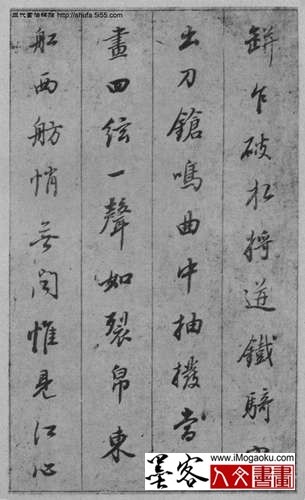 http://shufa.5i55.com
缾乍破水漿迸鐵騎突
出刀鎗鳴曲中抽撥當
畫四絃一聲如裂帛東
船西舫悄無聞惟見江心
www.iMogaoku.com
墨客人文書畫